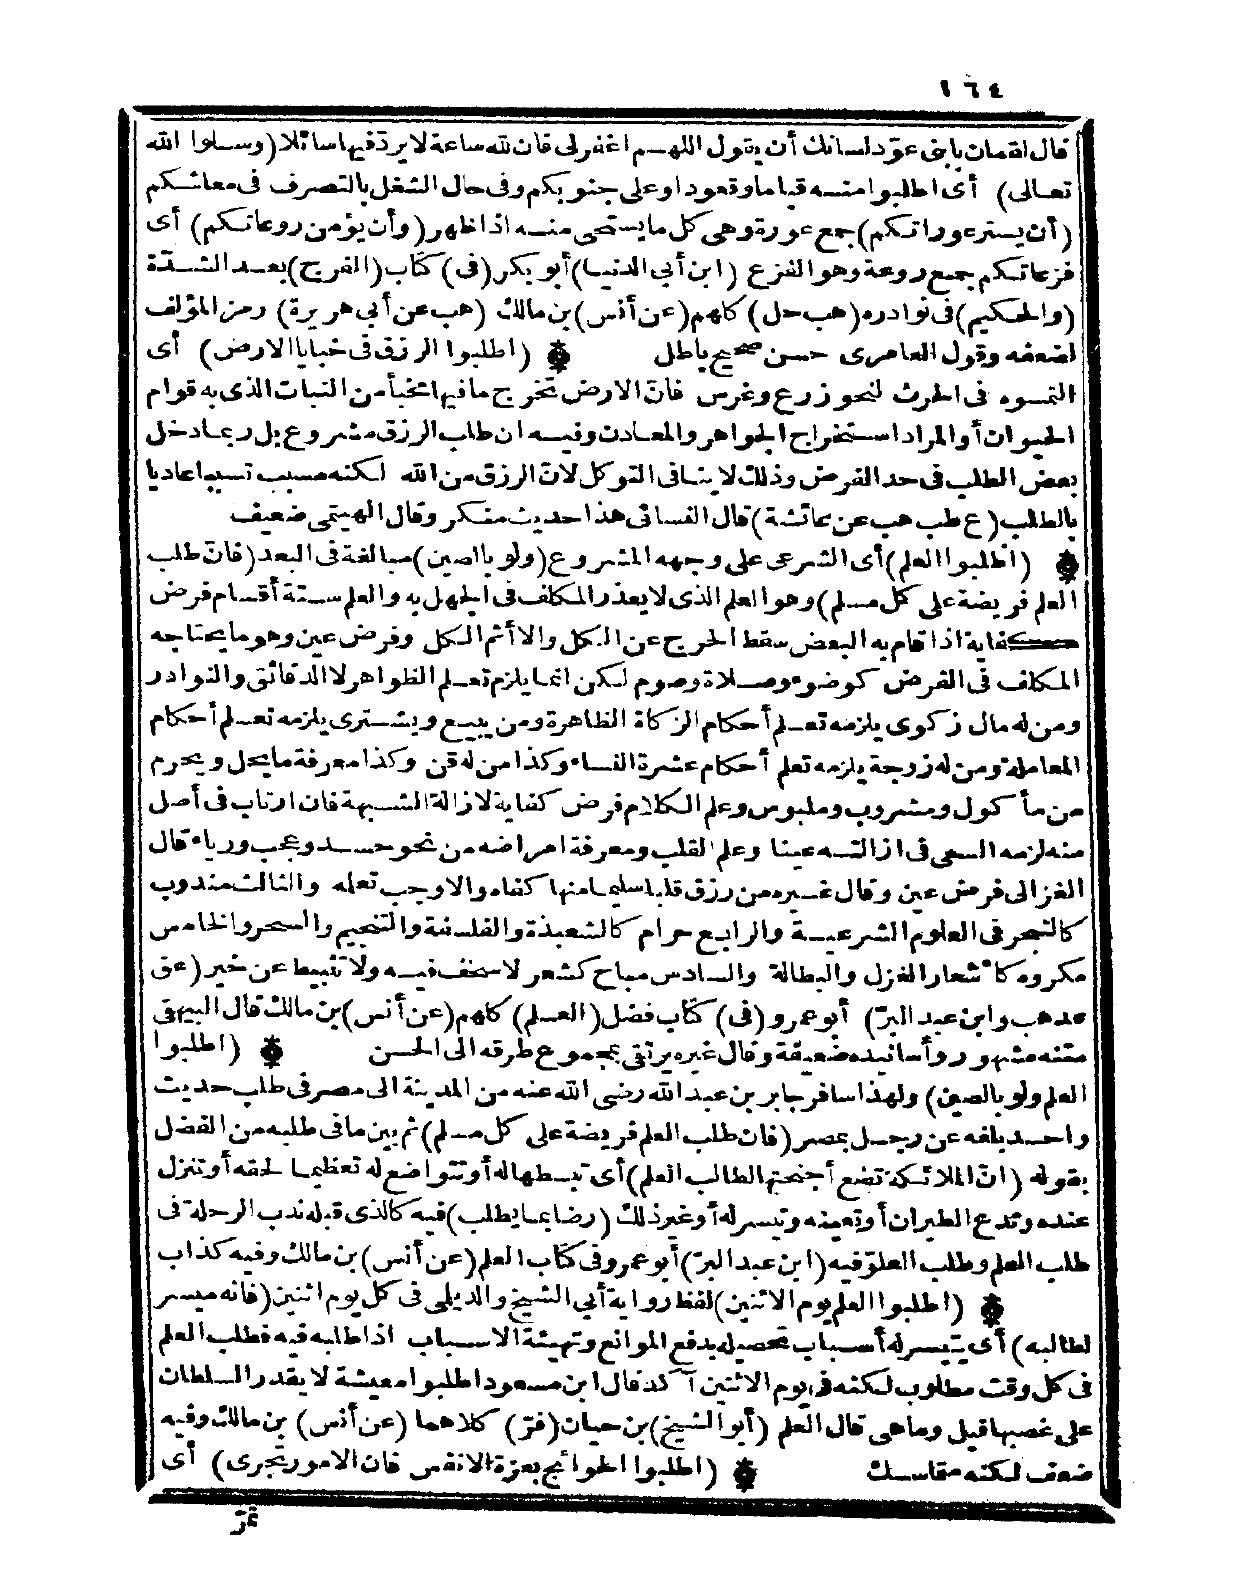 ١٦٤
قال لقمان يا بنى عوّد لسانك أن يقول اللهم اغفر لى فان لله ساعة لا يردّ فيها سائلا (وسلوا الله
تعالى) أى اطلبوا منه قياما وقعودا وعلى جنوبكم وفى حال الشغل بالتصرف فى معائشكم
(أن يستر عوراتكم) جمع عورة وهى كل ما يستحى منه اذا ظهر (وأن يؤمن روعاتكم) أى
فزعاتكم جمع روعة وهو الفزع (ابن أبى الدنيا) أبو بكر (فى) كتاب (الفرج) بعد الشدّة
(والحكيم) فى نوادره (هب حل) كلهم (عن أنس) بن مالك (هب عن أبى هريرة) رمز المؤلف
لضعفه وقول العامرى حسن صحيح باطل (اطلبوا الرزق فى خبايا الارض) أى
التمسوه فى الحرث لنحو زرع وغرس فانّ الارض تخرج ما فيها مخبأ من النبات الذى به قوام
الحيوان أو المراد استخراج الجواهر والمعادن وفيه ان طلب الرزق مشروع بل ربما دخل
بعض الطلب فى حد الفرض وذلك لا ينافى التوكل لانّ الرزق من الله لكنه مسبب تسببا عاديا
بالطلب (ع طب هب عن عائشة) قال النسائى هذا حديث منكر وقال الهيتمى ضعيف
(اطلبوا العلم) أى الشرعى على وجهه المشروع (ولو بالصين) مبالغة فى البعد (فانّ طلب
العلم فريضة على كل مسلم) وهو العلم الذى لا يعذر المكلف فى الجهل به والعلم ستة أقسام فرض
كفاية اذا قام به البعض سقط الحرج عن الكل والا أثم الكل وفرض عين وهو ما يحتاجه
المكلف فى الفرض كوضوء وصلاة وصوم لكن انما يلزم تعلم الظواهر لا الدقائق والنوادر
ومن له مال زكوى يلزمه تعلم أحكام الزكاة الظاهرة ومن يبيع ويشترى يلزمه تعلم أحكام
المعاملة ومن له زوجة يلزمه تعلم أحكام عشرة النساء وكذا من له قن وكذا معرفة ما يحل ويحرم
من مأكول ومشروب وملبوس وعلم الكلام فرض كفاية لازالة الشبهة فان ارتاب فى أصل
منه لزمه السعى فى ازالته عينا وعلم القلب ومعرفة امراضه من نحو حسد وعجب ورياء قال
الغزالى فرض عين وقال غيره من رزق قلبا سليما منها كفاه والاوجب تعلمه والثالث مندوب
كالتبحر فى العلوم الشرعية والرابع حرام كالشعبذة والفلسفة والتنجيم والسحر والخامس
مكروه كأشعار الغزل والبطالة والسادس مباح كشعر لا سخف فيه ولا تثبيط عن خير (عق
عد هب وابن عبد البرّ) أبو عمرو (فى) كتاب فضل (العلم) كلهم (عن أنس) بن مالك قال البيهقى
متنه مشهور وأسانيده ضعيفة وقال غيره يرتقى بمجموع طرقه الى الحسن (اطلبوا
العلم ولو بالصين) ولهذا سافر جابر بن عبد الله رضى الله عنه من المدينة الى مصر فى طلب حديث
واحد بلغه عن رجل بمصر (فان طلب العلم فريضة على كل مسلم) ثم بين ما فى طلبه من الفضل
بقوله (انّ الملائكة تضع أجنحتها لطالب العلم) أى تبسطها له أو تتواضع له تعظيما لحقه أو تنزل
عنده وتدع الطيران أو تعينه وتيسر له أو غير ذلك (رضا بما يطلب) فيه كالذى قبله ندب الرحلة فى
طلب العلم وطلب العلوّ فيه (ابن عبد البرّ) أبو عمرو فى كتاب العلم (عن أنس) بن مالك وفيه كذاب
(اطلبوا العلم يوم الاثنين) لفظ رواية أبى الشيخ والديلى فى كل يوم اثنين (فانه ميسر
لطالبه) أى يتيسر له أسباب تحصيله بدفع الموانع وتهيئة الاسباب اذا طلبه فيه فطلب العلم
فى كل وقت مطلوب لكنه فى يوم الاثنين آكد قال ابن مسعود اطلبوا معيشة لا يقدر السلطان
على غصبها قيل وما هى قال العلم (أبو الشيخ) بن حيان (فرّ) كلاهما (عن أنس) بن مالك وفيه
ضعف لكنه متماسك (اطلبوا الحوائج بعزة الانفس فان الامور تجرى) أى